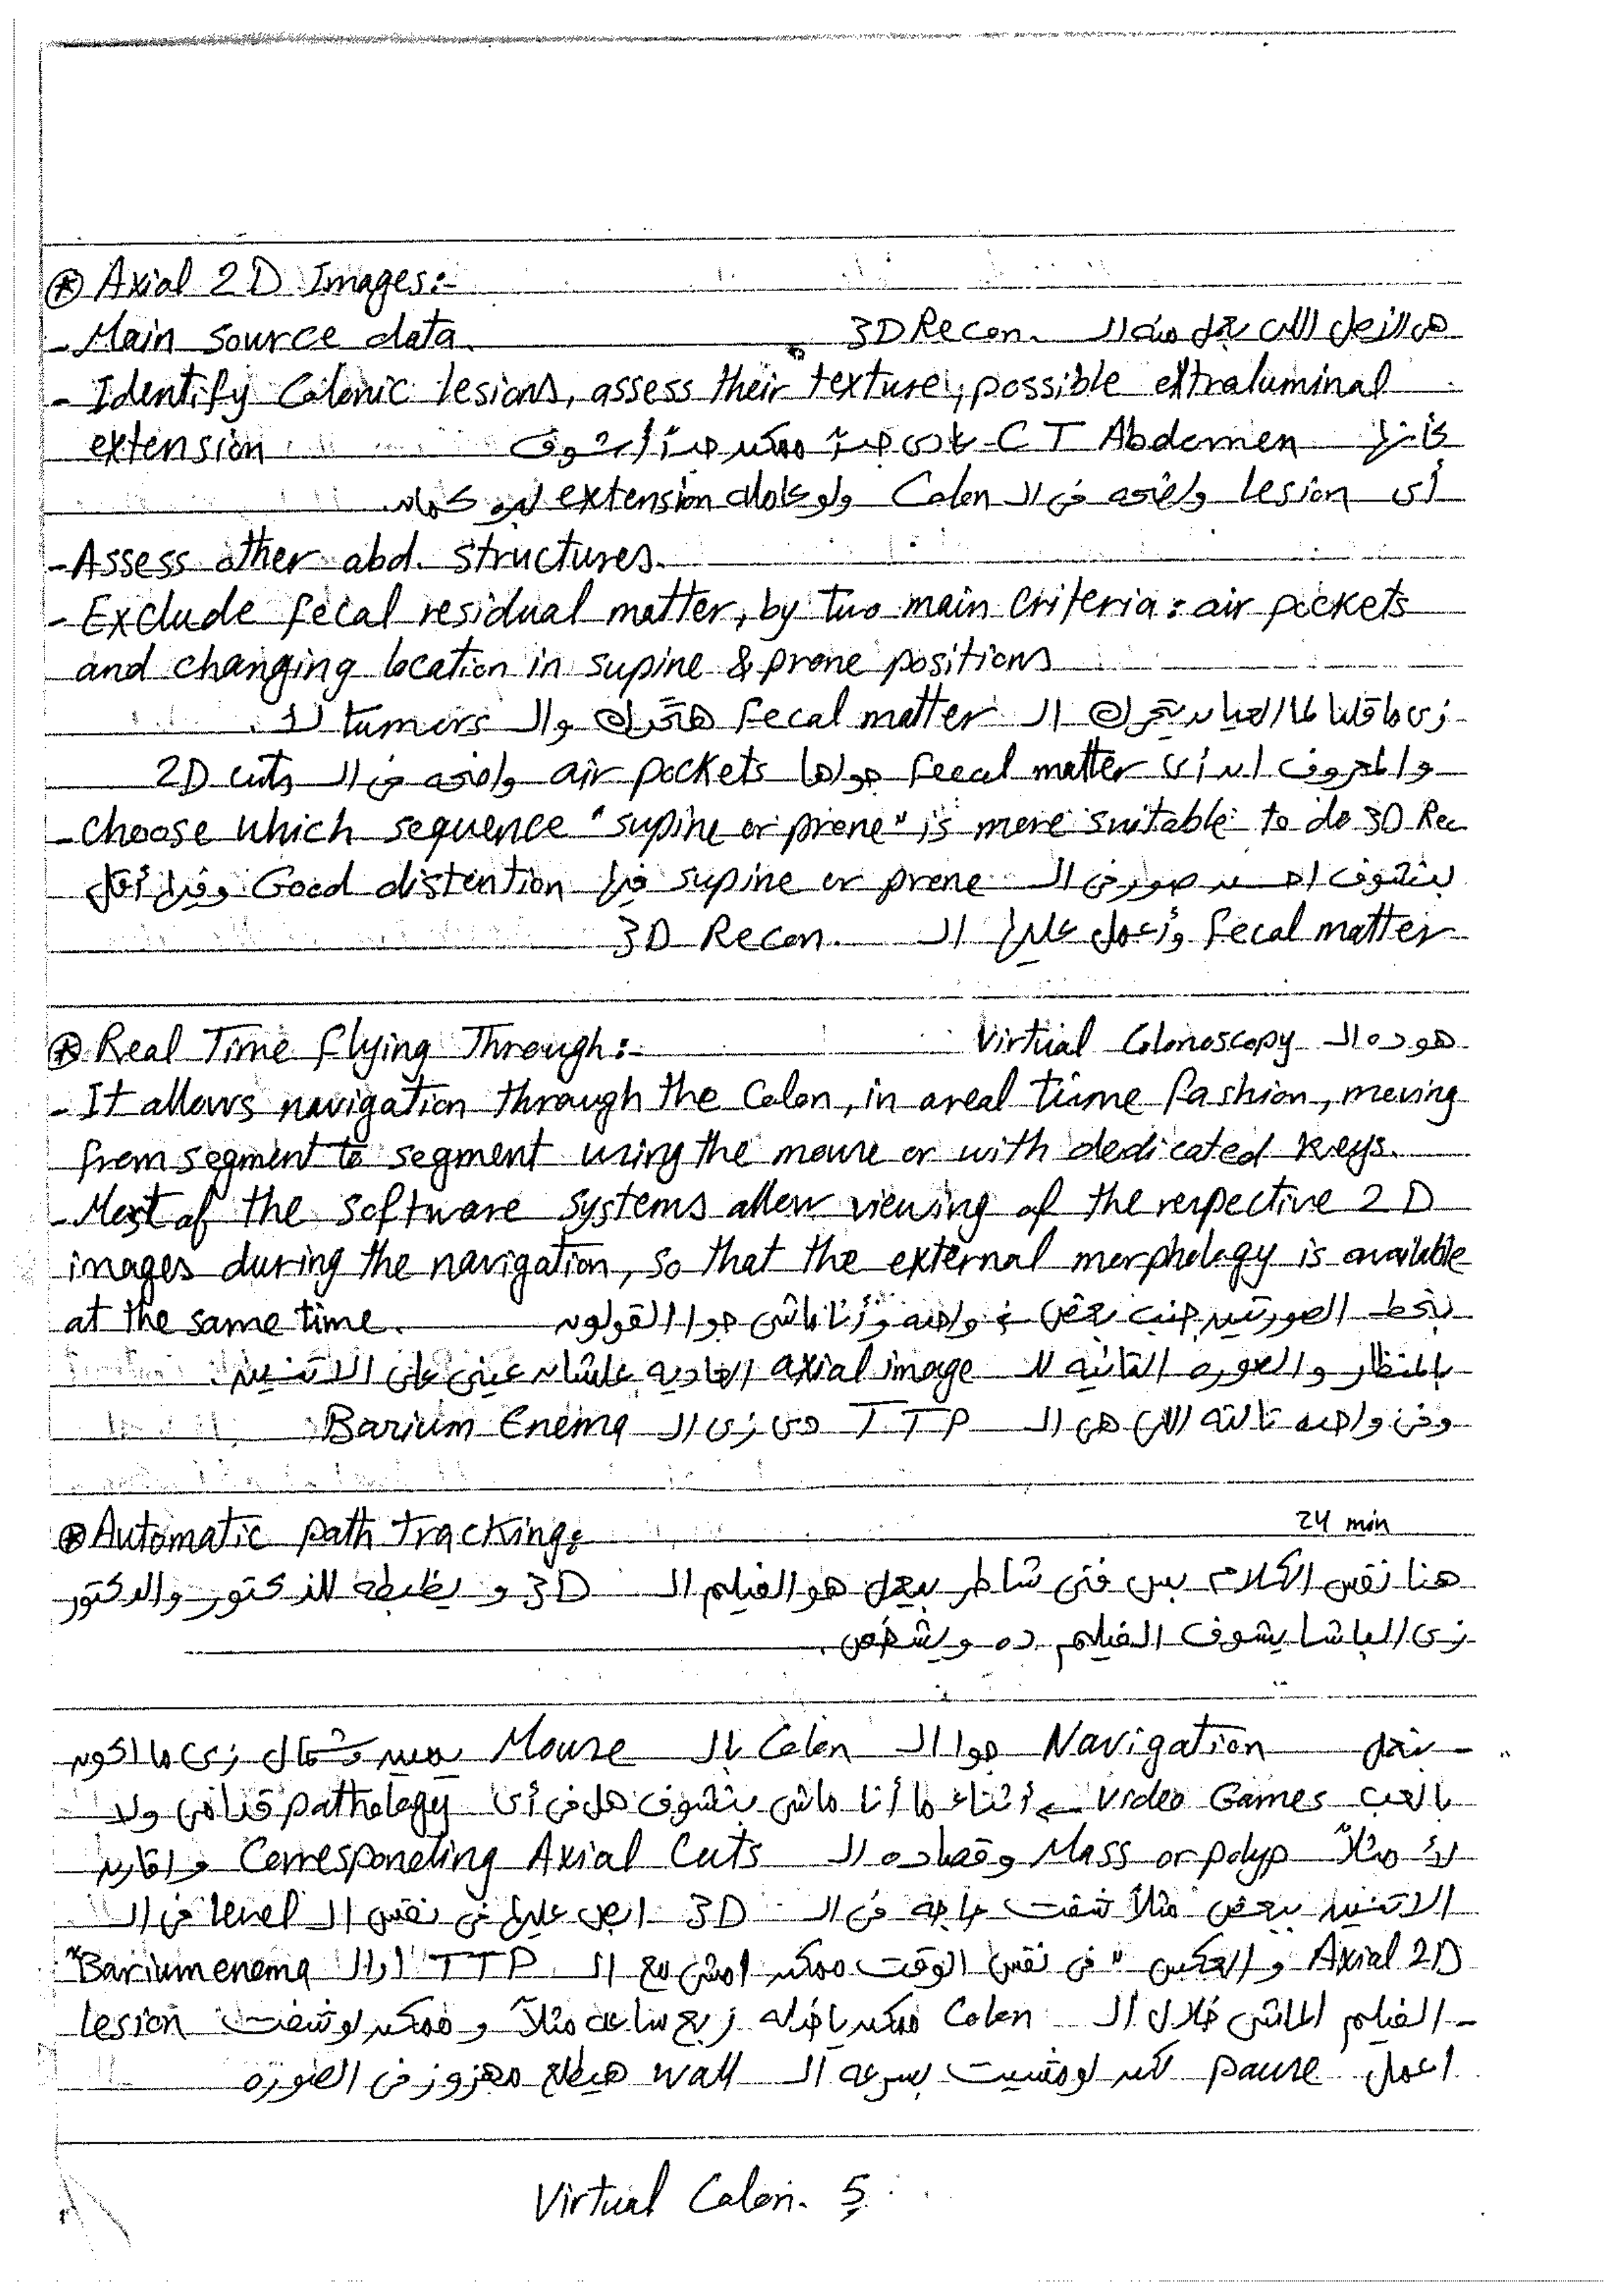 ⊛ Axial 2D Images:-
- Main source data. هي الأصل اللي بعمل منه الـ 3D Recon.
- Identify Colonic lesions, assess their texture, possible extraluminal
extension كأنها CT Abdomen عادي جداً ممكن جداً أشوف
أى lesion واضحه فى الـ Colon ولو عامله extension لبره كمان.
- Assess other abd. structures.
- Exclude fecal residual matter, by two main criteria: air pockets
and changing location in supine & prone positions
زى ما قلنا لما العيان يتحرك الـ fecal matter هتتحرك والـ tumors لأ.
والمعروف ان أى feacal matter جواها air pockets واضحه فى الـ 2D cuts
- Choose which sequence "supine or prone" is more suitable to do 3D Rec
بنشوف احسن صور فى الـ supine or prone فيها Good distention وفيها أقل
fecal matter وأعمل عليها الـ 3D Recon.
⊛ Real Time flying Through:- هو ده الـ Virtual Colonoscopy
- It allows navigation through the Colon, in areal tiime fashion, moving
from segment to segment using the mouse or with dedicated keys.
- Most of the software systems allow viewing of the respective 2D
images during the navigation, so that the external morphology is available
at the same time. بنحط الصورتين جنب بعض واحده وأنا ماشى جوا القولون
بالمنظار والصوره التانيه للـ axial image العاديه علشان عينى على الاتنين.
وفى واحده تالته اللى هى الـ TTP دى زى الـ Barium Enema
⊛ Automatic path tracking: 24 min
هنا نفس الكلام بس فنى شاطر بيعمل هو الفيلم الـ 3D و يظبطه للدكتور والدكتور
زى الباشا يشوف الفيلم ده ويشخص.
- بنعمل Navigation جوا الـ Colon بالـ Mouse يمين وشمال زى ما اكون
بالعب Video Games ← أثناء ما أنا ماشى بنشوف هل فى أى pathology قدامى ولا
لأ مثلاً Mass or polyp وقصاده الـ Corresponding Axial Cuts واقارن
الاتنين ببعض مثلاً شفت حاجه فى الـ 3D ابص عليها فى نفس الـ level فى الـ
Axial 2D والعكس "فى نفس الوقت ممكن امشى مع الـ TTP او الـ Barium enema"
- الفيلم الماشى خلال الـ Colon ممكن ياخدله ربع ساعه مثلاً و ممكن لو شفت lesion
اعمل pause لكن لو مشيت بسرعه الـ wall هيطلع مهزوز فى الصوره
Virtual Colon. 5